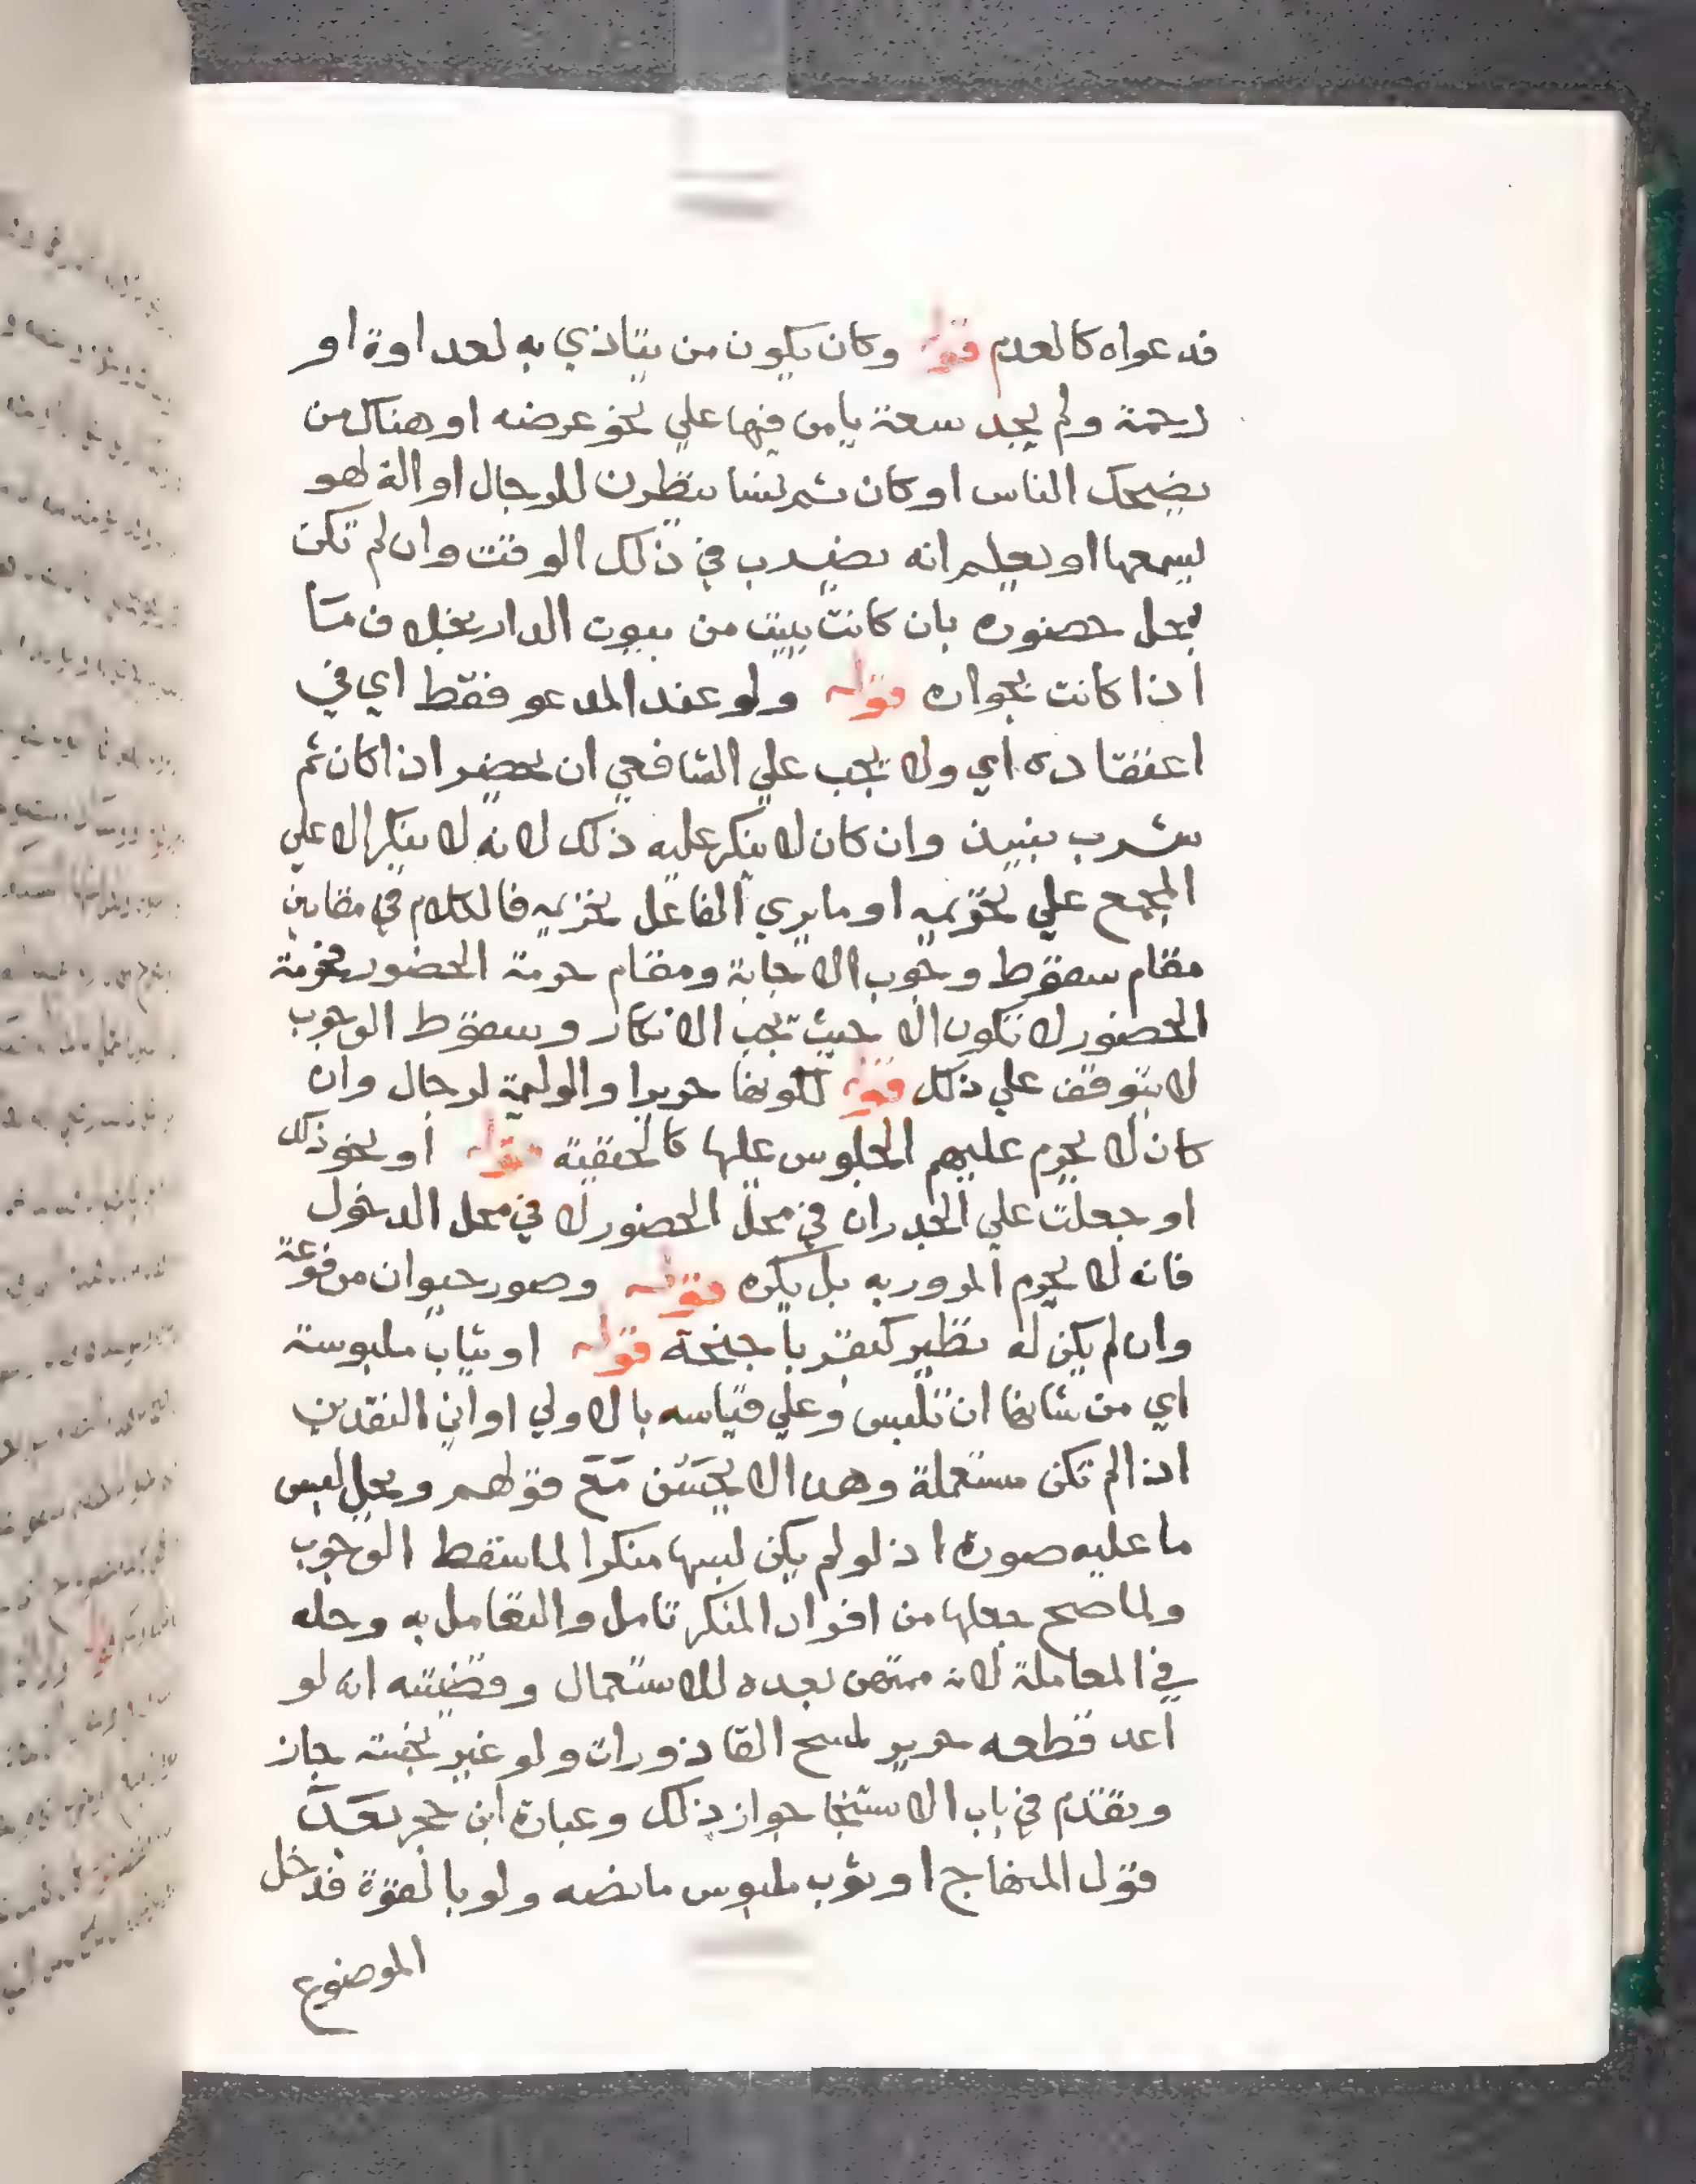 فدعواه كالعدم قوله وكان يكون من يتاذي به لعداوة او
زحمة ولم يجد سعة يامن فيها علي نحو عرضه او هناك من
يضحك الناس او كان ثم نسا ينظرن للرجال او الة لهو
يسمعها او يعلم انه يضرب في ذلك الوقت وان لم تكن
بمحل حضوره بان كانت ببيت من بيوت الدار بخلاف ما
اذا كانت بجواره قوله ولو عند المدعو فقط اي في
اعتقاده اي ولا يجب علي الشافعي ان يحضر اذا كان ثم
شرب نبيذ وان كان لا ينكر عليه ذلك لانه لا ينكر الا علي
المجمع علي تحريمه او ما يري الفاعل تحريمه فالكلام في مقامين
مقام سقوط وجوب الاجابة ومقام حرمة الحضور فحرمة
الحضور لا تكون الا حيث يجب الانكار وسقوط الوجوب
لا يتوقف علي ذلك قوله لكونها حريرا والوليمة لرجال وان
كان لا يحرم عليهم الجلوس عليها كالحنفية قوله او نحو ذلك
او جعلت علي الجدران في محل الحضور لا في محل الدخول
فانه لا يحرم المرور به بل يكره قوله وصور حيوان مرفوعة
وان لم يكن له نظير كبقر باجنحة قوله او ثياب ملبوسة
اي من شانها ان تلبس وعلي قياسه بالاولي اواني النقدين
اذا لم تكن مستعملة وهذا لا يحسن مع قولهم ويحل لبس
ما عليه صورة اذ لو لم يكن لبسها منكرا لما سقط الوجوب
ولما صح جعلها من افراد المنكر تامل والتعامل به وحله
في المعاملة لانه ممتهن بعده للاستعمال وقضيته انه لو
اعد قطعه حرير لمسح القاذورات ولو غير نجسة جاز
وتقدم في باب الاستنجا جواز ذلك وعبارة ابن حجر بعد
قول المنهاج او ثوب ملبوس ما نصه ولو بالقوة فدخل
الموضوع